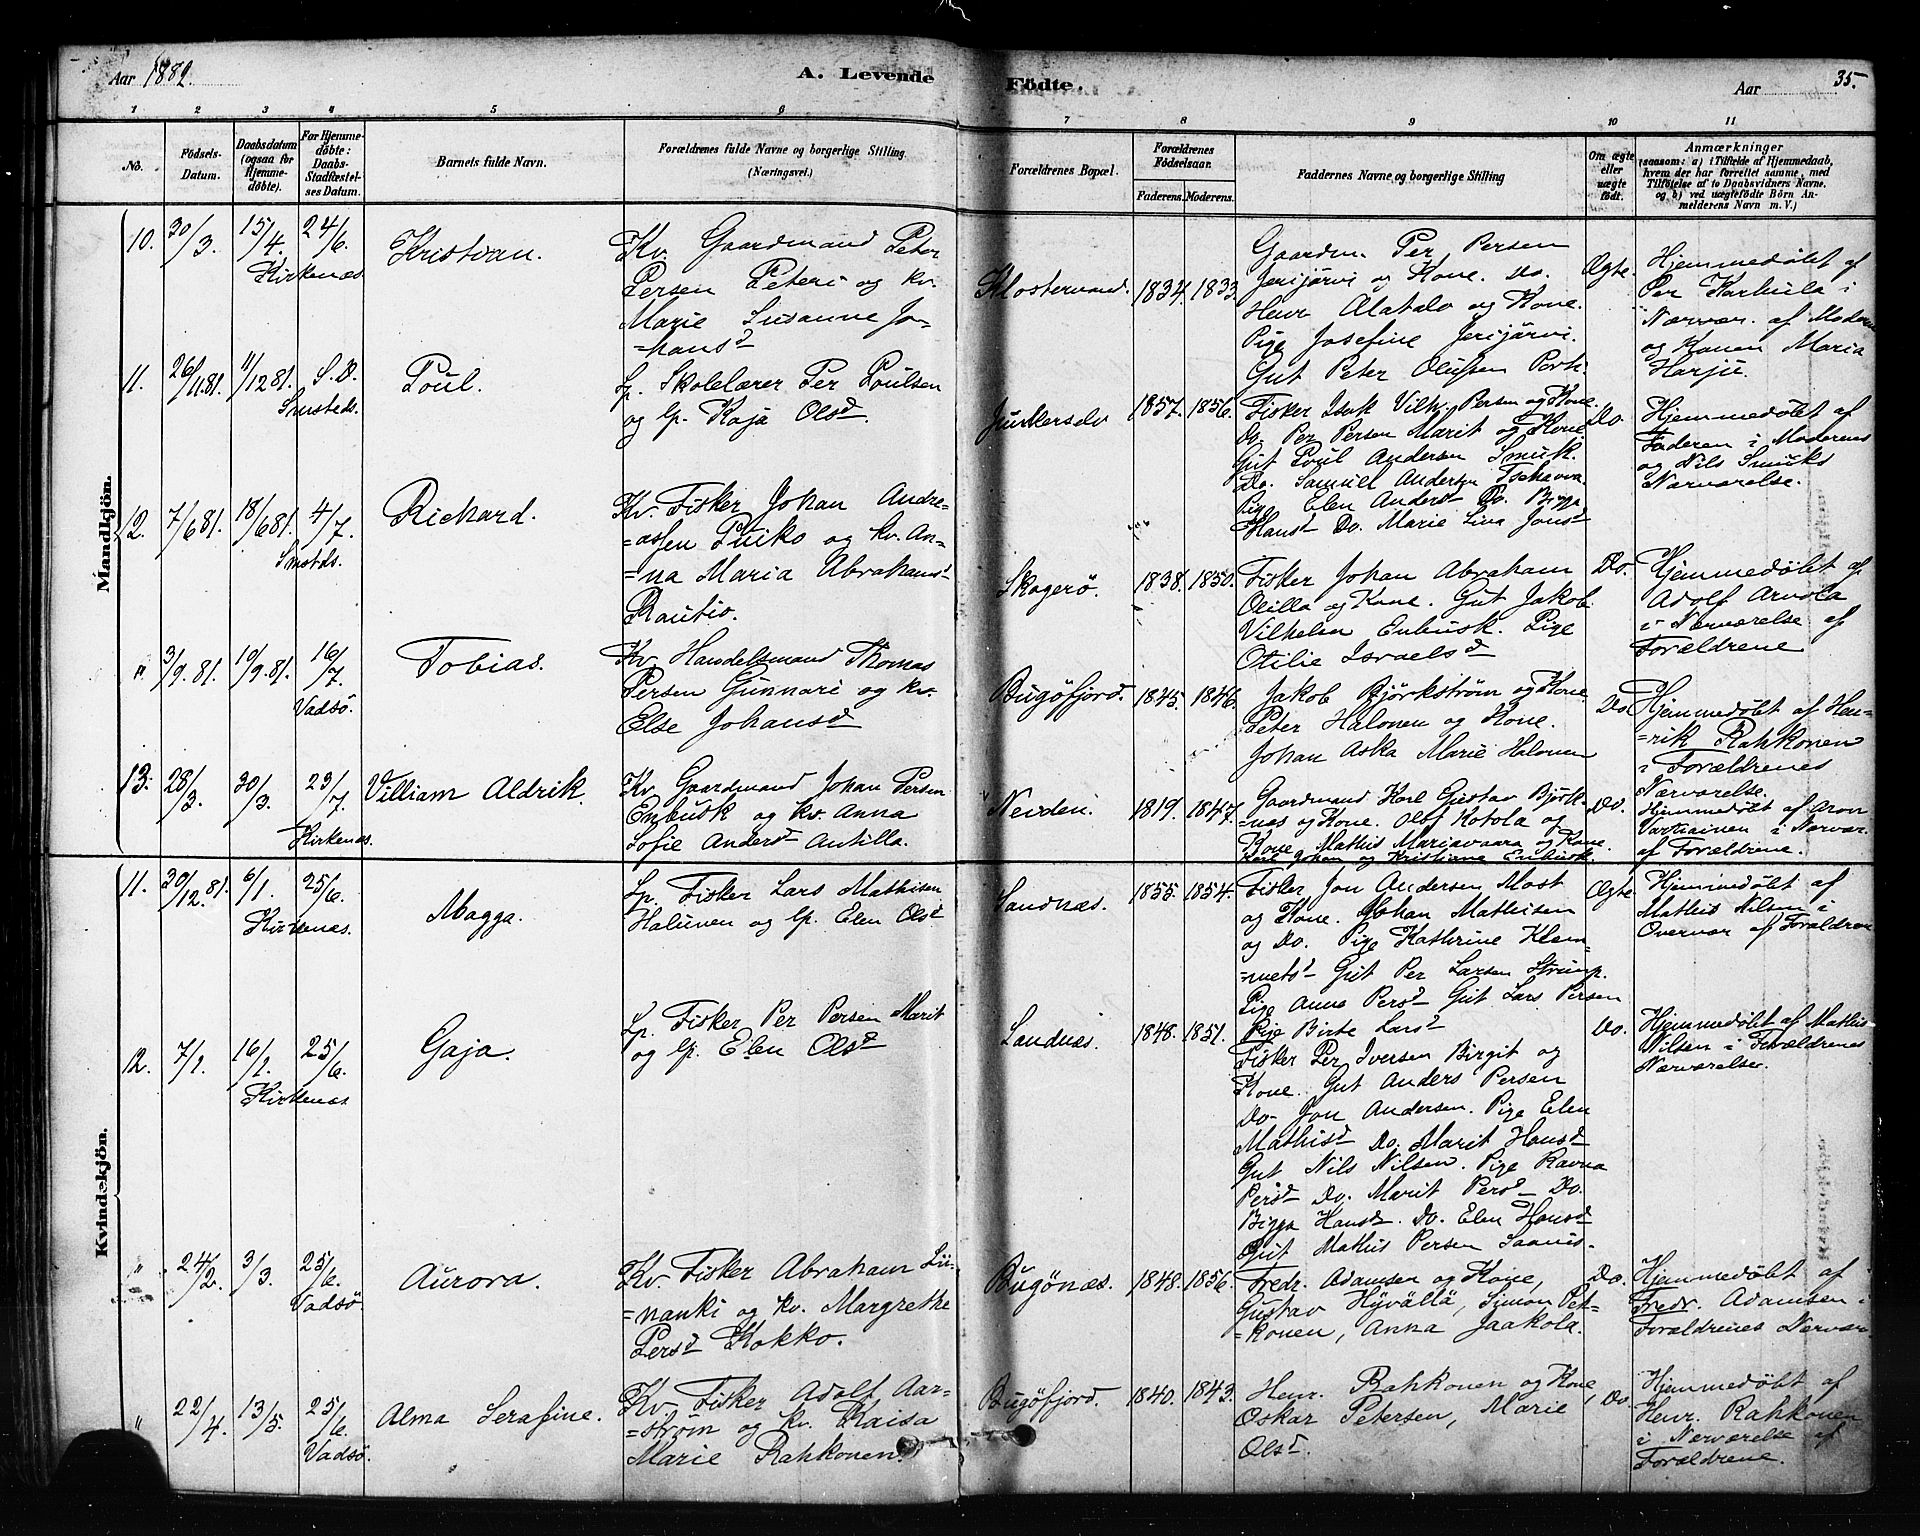 Aar 1882.
A. Levende
Födte.
Aar
35.
1 2 3 4 5 6 7 8 9 10 11
No.
Födsels-Datum.
Daabsdatum (ogsaa for Hjemmedøbte).
For Hjemmedøbte: Daabs-Stadfæstelses Datum.
Barnets fulde Navn.
Forældrenes fulde Navne og borgerlige Stilling (Næringsvei.)
Forældrenes Bopæl.
Forældrenes Födselsaar.
Faderens. Moderens.
Faddernes Navne og borgerlige Stilling
Om ægte eller uægte födt.
Anmærkninger
(saasom: a) i Tilfælde af Hjemmedaab, hvem der har forrettet samme, med Tilföielse af to Daabsvidners Navne, og b) ved uægtefödte Börn Anmelderens Navn m. V.)
Mandkjön.
10. 30/3. 15/4. 24/6. Kirkenæs
Kristian.
Kv. Gaardmand Peter
Persen Peteri og kv.
Marie Susanne Jo-
=hansd
Klostervand. 1834. 1833.
Gaardm. Per Persen
Jerijärvi og Kone. Do.
Henr Alatalo og Kone.
Pige Josefine Jerijärvi.
Gut Peter Olussen Port.
Ægte.
Hjemmedøbt af
Per Karhula i
Nærvær. af Moderen
og Konen Maria
Harju.
11. 26/11 81. 11/12 81. S. D.
Poul.
Lp. Skolelærer Per Poulsen
og lp. Kaja Olsd
Junkerselv 1857. 1856.
Fisker Isak Vilh. Persen og Kone.
Do. Per Persen Marit og Kone
Gut Poul Andersen Smuk.
Do. Samuel Andersen
Pige Elen Andersd Do. Bigga
Hansd Do. Marie Lina Jonsd
Do.
Hjemmedøbt af
Faderen i Moderens
og Nils Smuks
Nærværelse.
12. 7/6 81. 18/6 81. 4/7.
Richard.
Kv. Fisker Johan Andre-
=assen Puiko og kv. An-
=na Maria Abrahamsd
Rautio.
Skogerö. 1838. 1850.
Fisker Johan Abraham
Olilla og Kone. Gut Jakob
Vilhelm Enbusk. Pige
Otilie Israelsd
Do.
Hjemmedøbt af
Adolf Arvola
i Nærværelse af
Forældrene
" 3/9. 81. 19/9. 81. 16/7. Vadsö.
Tobias.
Kv. Handelsmand Thomas
Persen Gunnari og kv.
Else Johansd
Bugöfjord. 1845. 1846.
Jakob Björkström og Kone
Peter Halonen og Kone.
Johan Aska Marie Halonen
Do.
Hjemmedøbt af Hen-
=rik Rahkonen
i Forældrenes
Nærværelse.
13. 28/3. 30/3. 23/7. Kirkenæs.
Villiam Aldrik.
Kv. Gaardmand Johan Persen
Enbusk og kv. Anna
Sofie Andersd Antilla.
Neiden. 1819. 1847.
Gaardmand Karl Gustav Björk-
=næs og Kone. Olof Kotola og
Kone. Mathis Mariavaara og Kone.
Karl Johan og Kristiane Enbusk.
Do.
Hjemmedøbt af Aron
Vartiainen i Nærvær.
af Forældrene.
Kvindekjön.
11. 30/12. 81. 6/1. 25/6. Kirkenæs.
Magga.
Lp. Fisker Lars Mathisen
Halunen og lp. Elen Olsd
Sandnæs. 1855. 1854.
Fisker Jon Andersen Most
og Kone. Johan Mathisen
og Do. Pige Kathrine Klem-
=metsd Gut Per Larsen Strimp.
Pige Anna Persd Gut Lars Persen
Pige Birte Larsd
Ægte
Hjemmedøbt af
Mathis Nilsen i
Overvær af Forældren
12. 7/2. 16/2. 25/6. Kirkenæs
Gaja.
Lp. Fisker Per Persen Marit
og lp. Elen Olsd
Sandnæs. 1848. 1851.
Fisker Per Iversen Birgit og
Kone. Gut Anders Persen
Do. Jon Andersen. Pige Elen
Mathisd Do. Marit Hansd
Gut Nils Nilsen. Pige Ravna
Persd Do. Marit Persd Do.
Bigga Hansd. Do. Elen Hansd
Gut Mathis Persen Saanis.
Do.
Hjemmedøbt af Mathis
Nilsen i Forældrenes
Nærværelse.
" 24/2. 3/3. 25/6. Vadsö.
Aurora.
Kv. Fisker Abraham Lii-
=nanki og kv. Margrethe
Persd Kokko.
Bugönæs. 1848. 1856.
Fredr. Adamsen og Kone,
Gustav Hyvällä, Simon Pek-
=konen, Anna Jaakola.
Do.
Hjemmedøbt af
Fredr. Adamsen i
Forældrenes Nærvær.
" 22/4. 13/5. 25/6. Vadsö.
Alma Serafine.
Kv. Fisker Adolf Aar-
=ström og kv. Kaisa
Marie Rahkonen.
Bugöfjord. 1840. 1843.
Henr. Rahkonen og Kone,
Oskar Petersen, Marie
Olsd.
Do.
Hjemmedøbt af
Henr. Rahkonen
i Nærværelse af
Forældrene.